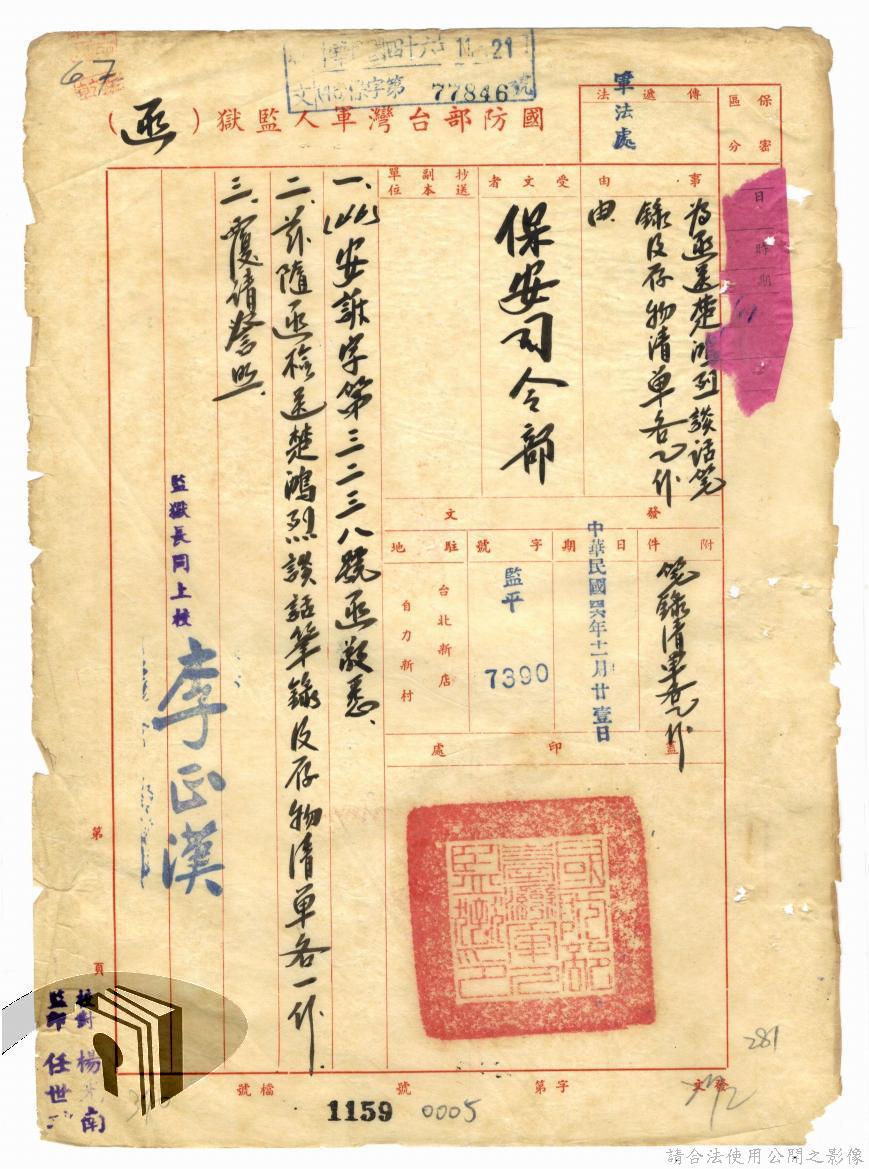 67
四十六 11. 21
文 字第 77846 號
國防部台灣軍人監獄（函）
保密區分
傳遞法
軍法處
事由
為函送楚鴻烈談話筆
錄及存物清單各乙件
由
受文者
保安司令部
抄送副本單位
發文
附件
筆錄清單各乙件
日期
中華民國四六年十一月廿壹日
字號
監平
7390
駐地
台北新店
自力新村
蓋印處
國防部
臺灣軍人
監獄印
一、(46)安訴字第三二三八號函敬悉、
二、茲隨函檢送楚鴻烈談話筆錄及存物清單各一件、
三、覆請詧照、
監獄長同上校
李正漢
第
頁
校對 楊 南
監印 任世
發文 字第 號
檔號
1159 0005
281
請合法使用公開之影像